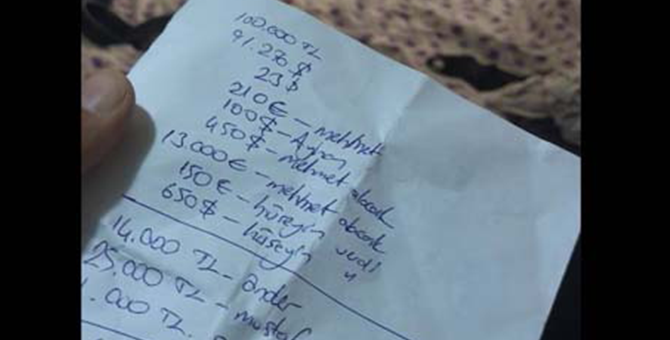 100.000 TL
91.276 $
23 $
210 € - mehmet
100 $ - Ayhan
450 $ - mehmet alacak
13.000 € - mehmet alacak
150 € - hüseyin verdi
650 $ - hüseyin "
14.000 TL - önder
25.000 TL - mustaf
.000 TL.